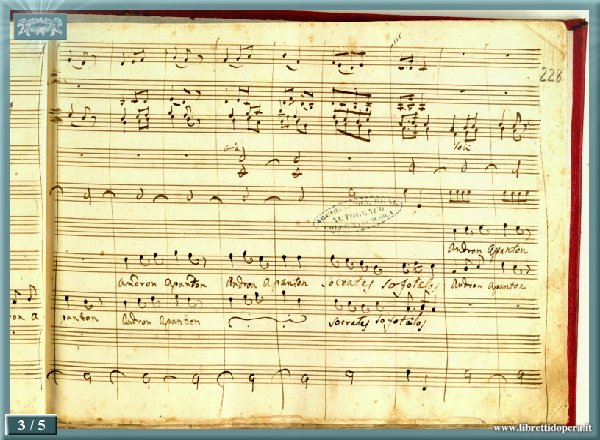 228
Andron apanton
Andron apanton Andron apanton Socrates Sofotatos Andron apanton
apanton Andron apanton Socrates Sofotatos
3 / 5
www.librettidopera.it